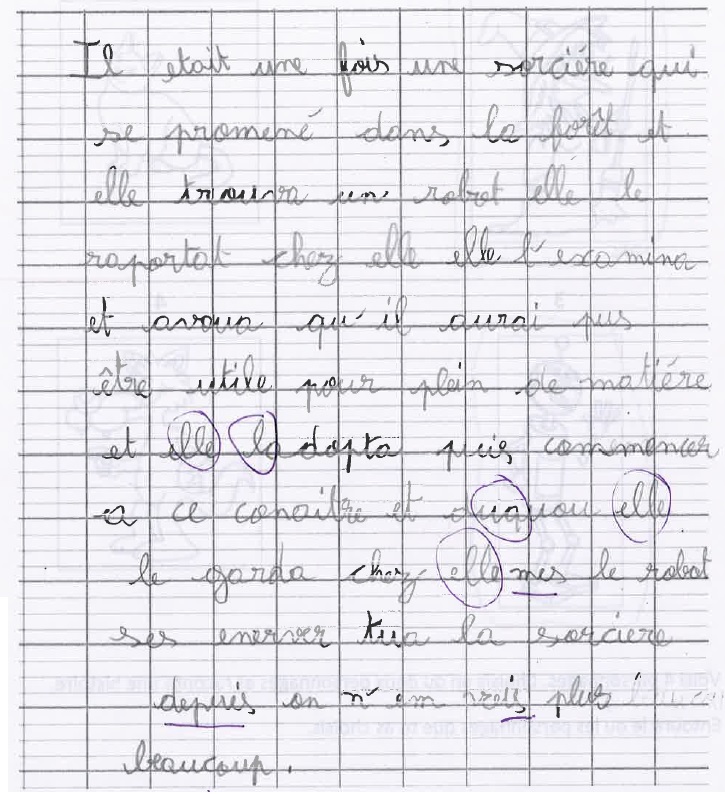 Il etait une fois une sorciére qui
se promené dans la forêt et
elle trouva un robot elle le
raportat chez elle elle l'examina
et avoua qu'il aurai pus
être utile pour plein de matiére
et elle la dopta puis commencer
a ce conaitre et duquou elle
le garda chez elle mes le robot
ses enerver tua la sorciere
depuis on n'em vois plus
beaucoup.